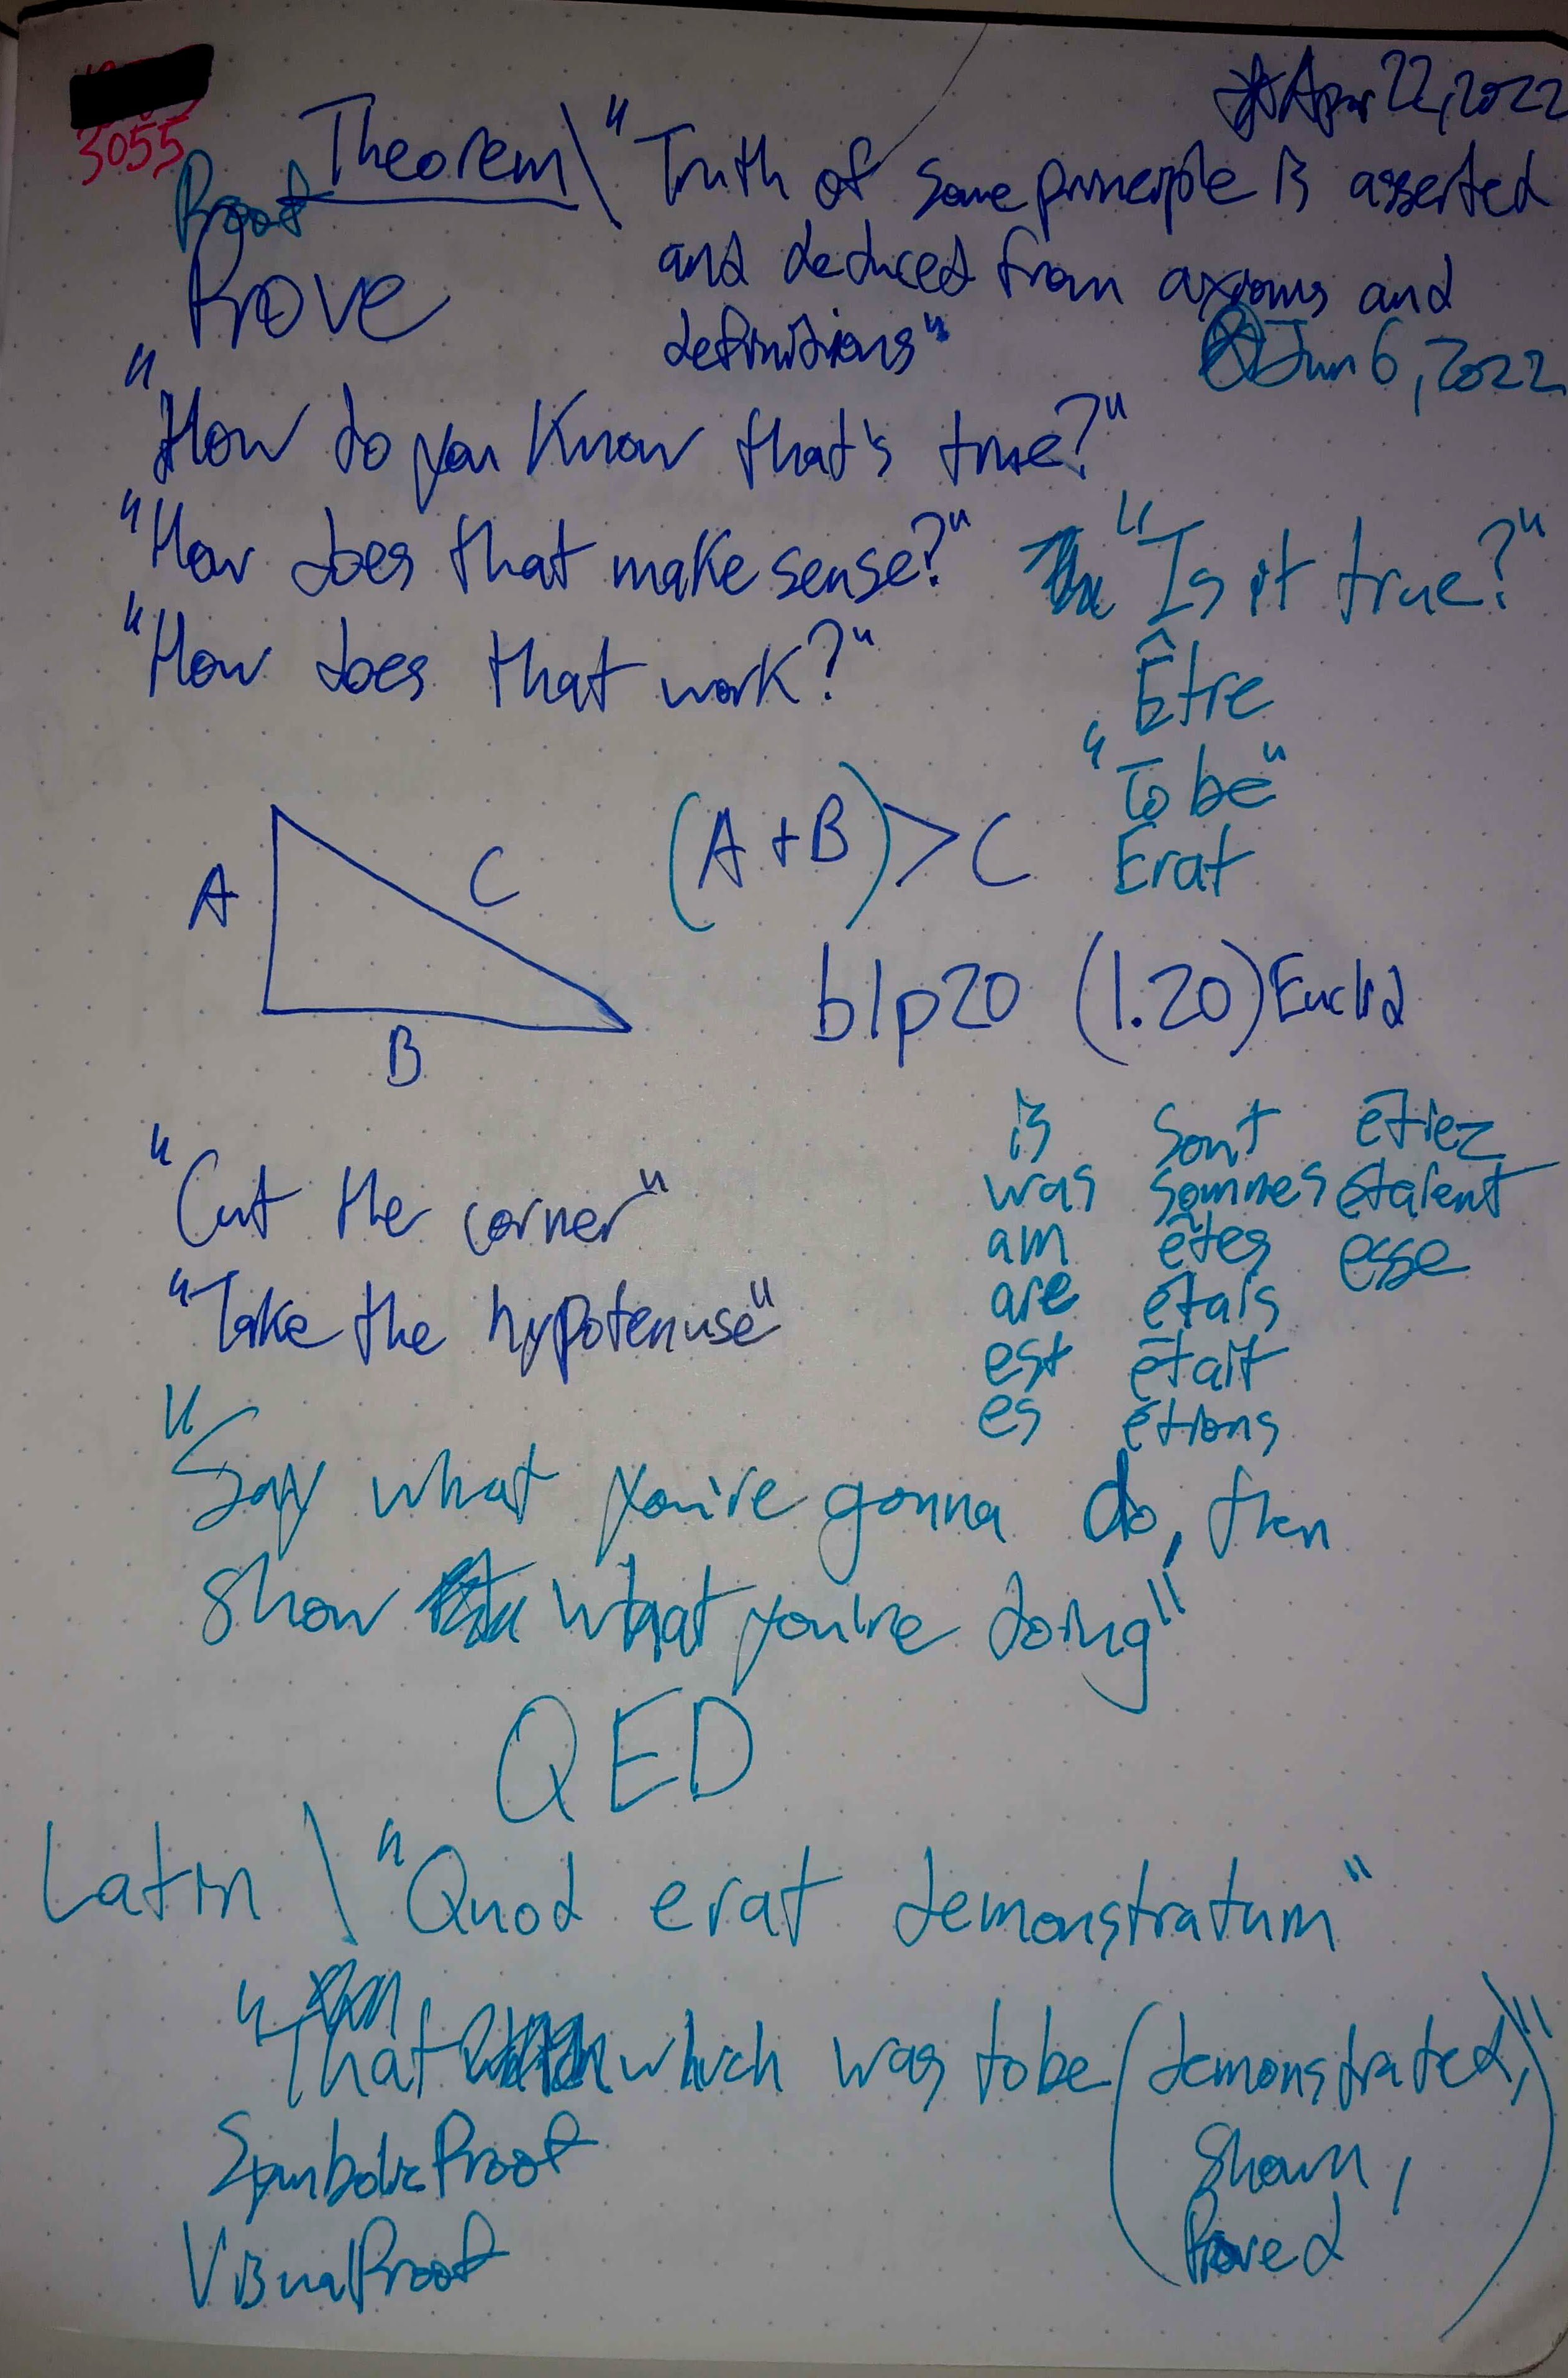 Apr 22, 2022
3055
Theorem \ "Truth of some principle is asserted
and deduced from axioms and
definitions"
Proof
Prove
Jun 6, 2022
"How do you know that's true?"
"How does that make sense?"
"Is it true?"
"How does that work?"
Être
"To be"
Erat
A
C
B
(A + B) > C
b1p20 (1.20) Euclid
"Cut the corner"
"Take the hypotenuse"
is sont étiez
was sommes étaient
am êtes esse
are étais
est était
es étions
"Say what you're gonna do, then
show what you're doing"
QED
Latin \ "Quod erat demonstratum"
"That which was to be (demonstrated,
shown,
Proved)"
Symbolic Proof
Visual Proof